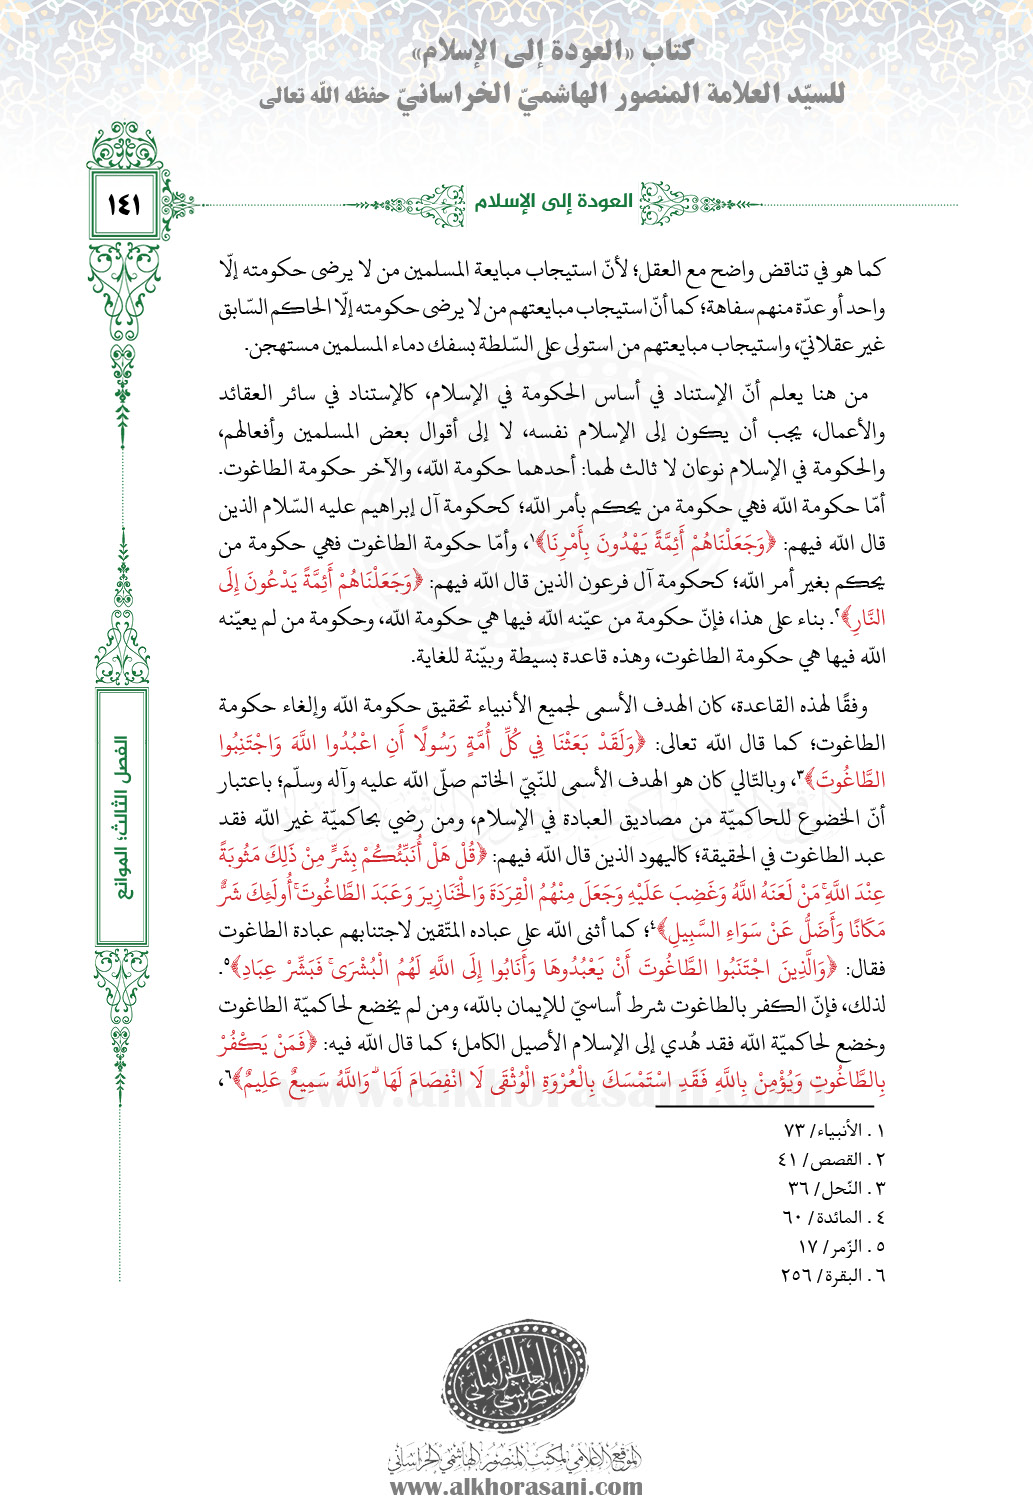 كتاب «العودة إلى الإسلام»
للسيّد العلامة المنصور الهاشميّ الخراسانيّ حفظه اللّه تعالى
١٤١
العودة إلى الإسلام
كما هو في تناقض واضح مع العقل؛ لأنّ استيجاب مبايعة المسلمين من لا يرضى حكومته إلّا
واحد أو عدّة منهم سفاهة؛ كما أنّ استيجاب مبايعتهم من لا يرضى حكومته إلّا الحاكم السّابق
غير عقلانيّ، واستيجاب مبايعتهم من استولى على السّلطة بسفك دماء المسلمين مستهجن.
من هنا يعلم أنّ الإستناد في أساس الحكومة في الإسلام، كالإستناد في سائر العقائد
والأعمال، يجب أن يكون إلى الإسلام نفسه، لا إلى أقوال بعض المسلمين وأفعالهم،
والحكومة في الإسلام نوعان لا ثالث لهما: أحدهما حكومة اللّه، والآخر حكومة الطاغوت.
أمّا حكومة اللّه فهي حكومة من يحكم بأمر اللّه؛ كحكومة آل إبراهيم عليه السّلام الذين
قال اللّه فيهم: ﴿وَجَعَلْنَاهُمْ أَئِمَّةً يَهْدُونَ بِأَمْرِنَا﴾١، وأمّا حكومة الطاغوت فهي حكومة من
يحكم بغير أمر اللّه؛ كحكومة آل فرعون الذين قال اللّه فيهم: ﴿وَجَعَلْنَاهُمْ أَئِمَّةً يَدْعُونَ إِلَى
النَّارِ﴾٢. بناء على هذا، فإنّ حكومة من عيّنه اللّه فيها هي حكومة اللّه، وحكومة من لم يعيّنه
اللّه فيها هي حكومة الطاغوت، وهذه قاعدة بسيطة وبيّنة للغاية.
وفقًا لهذه القاعدة، كان الهدف الأسمى لجميع الأنبياء تحقيق حكومة اللّه وإلغاء حكومة
الطاغوت؛ كما قال اللّه تعالى: ﴿وَلَقَدْ بَعَثْنَا فِي كُلِّ أُمَّةٍ رَسُولًا أَنِ اعْبُدُوا اللَّهَ وَاجْتَنِبُوا
الطَّاغُوتَ﴾٣، وبالتّالي كان هو الهدف الأسمى للنّبيّ الخاتم صلّى اللّه عليه وآله وسلّم؛ باعتبار
أنّ الخضوع للحاكميّة من مصاديق العبادة في الإسلام، ومن رضي بحاكميّة غير اللّه فقد
عبد الطاغوت في الحقيقة؛ كاليهود الذين قال اللّه فيهم: ﴿قُلْ هَلْ أُنَبِّئُكُمْ بِشَرٍّ مِنْ ذَلِكَ مَثُوبَةً
عِنْدَ اللَّهِ ۚ مَنْ لَعَنَهُ اللَّهُ وَغَضِبَ عَلَيْهِ وَجَعَلَ مِنْهُمُ الْقِرَدَةَ وَالْخَنَازِيرَ وَعَبَدَ الطَّاغُوتَ ۚ أُولَئِكَ شَرٌّ
مَكَانًا وَأَضَلُّ عَنْ سَوَاءِ السَّبِيلِ﴾٤؛ كما أثنى اللّه على عباده المتّقين لاجتنابهم عبادة الطاغوت
فقال: ﴿وَالَّذِينَ اجْتَنَبُوا الطَّاغُوتَ أَنْ يَعْبُدُوهَا وَأَنَابُوا إِلَى اللَّهِ لَهُمُ الْبُشْرَى ۚ فَبَشِّرْ عِبَادِ﴾٥.
لذلك، فإنّ الكفر بالطاغوت شرط أساسيّ للإيمان باللّه، ومن لم يخضع لحاكميّة الطاغوت
وخضع لحاكميّة اللّه فقد هُدي إلى الإسلام الأصيل الكامل؛ كما قال اللّه فيه: ﴿فَمَنْ يَكْفُرْ
بِالطَّاغُوتِ وَيُؤْمِنْ بِاللَّهِ فَقَدِ اسْتَمْسَكَ بِالْعُرْوَةِ الْوُثْقَى لَا انْفِصَامَ لَهَا ۗ وَاللَّهُ سَمِيعٌ عَلِيمٌ﴾٦،
١ . الأنبياء/ ٧٣
٢ . القصص/ ٤١
٣ . النّحل/ ٣٦
٤ . المائدة/ ٦٠
٥ . الزّمر/ ١٧
٦ . البقرة/ ٢٥٦
الفصل الثالث؛ الموانع
www.alkhorasani.com
المنصور الهاشمي الخراساني
الموقع الإعلامي لمكتب المنصور الهاشمي الخراساني
www.alkhorasani.com